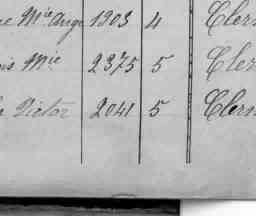 e Mie Ange 1903 4 Cler
is Mie 2375 5 Cler
Victor 2041 5 Cler